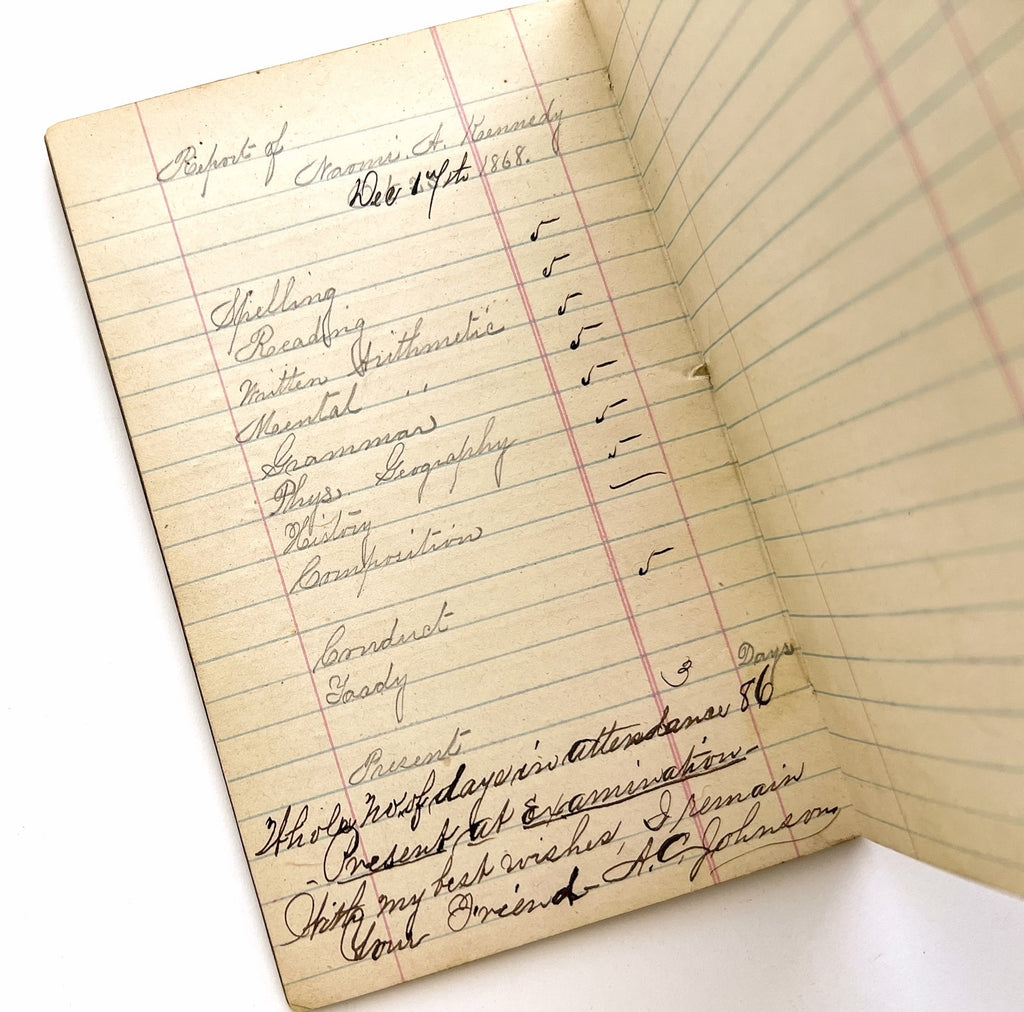 Report of
Naomi. A. Kennedy
Dec 17th 1868.
Spelling 5
Reading 5
Written Arithmetic 5
Mental " 5
Grammar 5
Phys. Geography 5
History 5
Composition —
Conduct 5
Tardy
Present 3 Days
Whole No. of days in attendance 86
- Present at Examination -
With my best wishes, I remain
Your Friend - A. C. Johnson